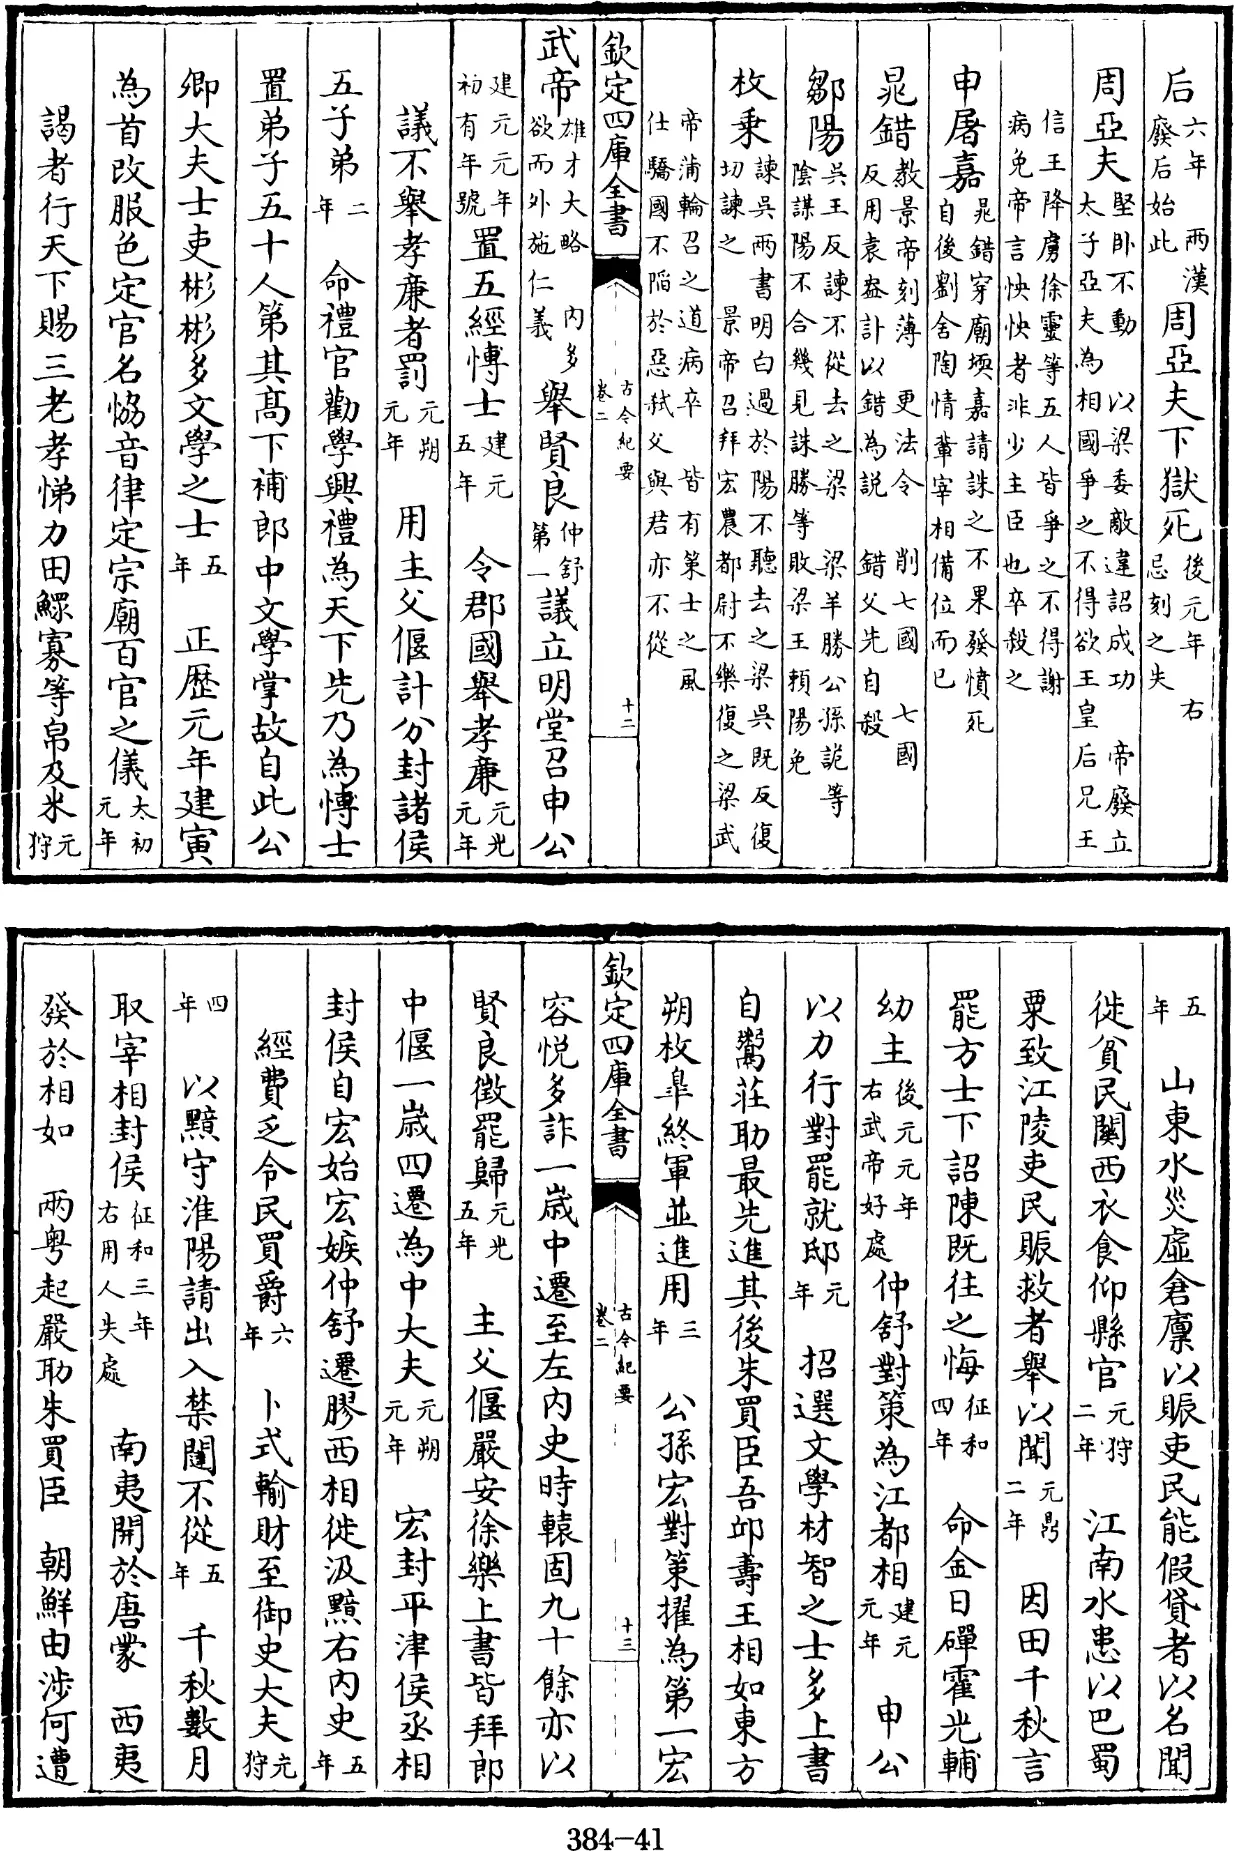 后六年 兩漢廢后始此 周亞夫下獄死後元年 右忌刻之失
周亞夫堅卧不動 以梁委敵違詔成功 帝廢立太子亞夫為相國爭之不得欲王皇后兄王
信王降虜徐靈等五人皆爭之不得謝病免帝言怏怏者非少主臣也卒殺之
申屠嘉晁錯穿廟堧嘉請誅之不果發憤死自後劉舍陶情輩宰相備位而已
晁錯教景帝刻薄 更法令 削七國 七國反用袁盎計以錯為説 錯父先自殺
鄒陽吳王反諫不從去之梁 梁羊勝公孫詭等陰謀陽不合幾見誅勝等敗梁王賴陽免
枚乗諫吳兩書明白過於陽不聽去之梁吳既反復切諫之 景帝召拜宏農都尉不樂復之梁武
帝蒲輪召之道病卒 皆有策士之風仕驕國不陷於惡弑父與君亦不從
欽定四庫全書 古今紀要 卷二 十二
武帝雄才大略 内多欲而外施仁義 舉賢良仲舒第一議立明堂召申公
建元元年初有年號置五經博士建元五年 令郡國舉孝廉元光元年
議不舉孝廉者罰元朔元年 用主父偃計分封諸侯
五子弟二年 命禮官勸學興禮為天下先乃為博士
置弟子五十人第其髙下補郎中文學掌故自此公
卿大夫士吏彬彬多文學之士五年 正歴元年建寅
為首改服色定官名恊音律定宗廟百官之儀太初元年
謁者行天下賜三老孝悌力田鰥寡等帛及米元狩
五年 山東水災虚倉廩以賑吏民能假貸者以名聞
徙貧民關西衣食仰縣官元狩二年 江南水患以巴蜀
粟致江陵吏民賑救者舉以聞元鼎二年 因田千秋言
罷方士下詔陳既往之悔征和四年 命金日磾霍光輔
幼主後元元年右武帝好處 仲舒對策為江都相建元元年 申公
以力行對罷就邸元年 招選文學材智之士多上書
自鬻莊助最先進其後朱買臣吾邱壽王相如東方
朔枚臯終軍並進用三年 公孫宏對策擢為第一宏
欽定四庫全書 古今紀要 卷二 十三
容悦多詐一歳中遷至左内史時轅固九十餘亦以
賢良徴罷歸元光五年 主父偃嚴安徐樂上書皆拜郎
中偃一歳四遷為中大夫元朔元年 宏封平津侯丞相
封侯自宏始宏嫉仲舒遷膠西相徙汲黯右内史五年
經費乏令民買爵六年 卜式輸財至御史大夫元狩
四年 以黯守淮陽請出入禁闥不從五年 千秋數月
取宰相封侯征和三年右用人失處 南夷開於唐蒙 西夷
發於相如 兩粤起嚴助朱買臣 朝鮮由涉何遭
384-41